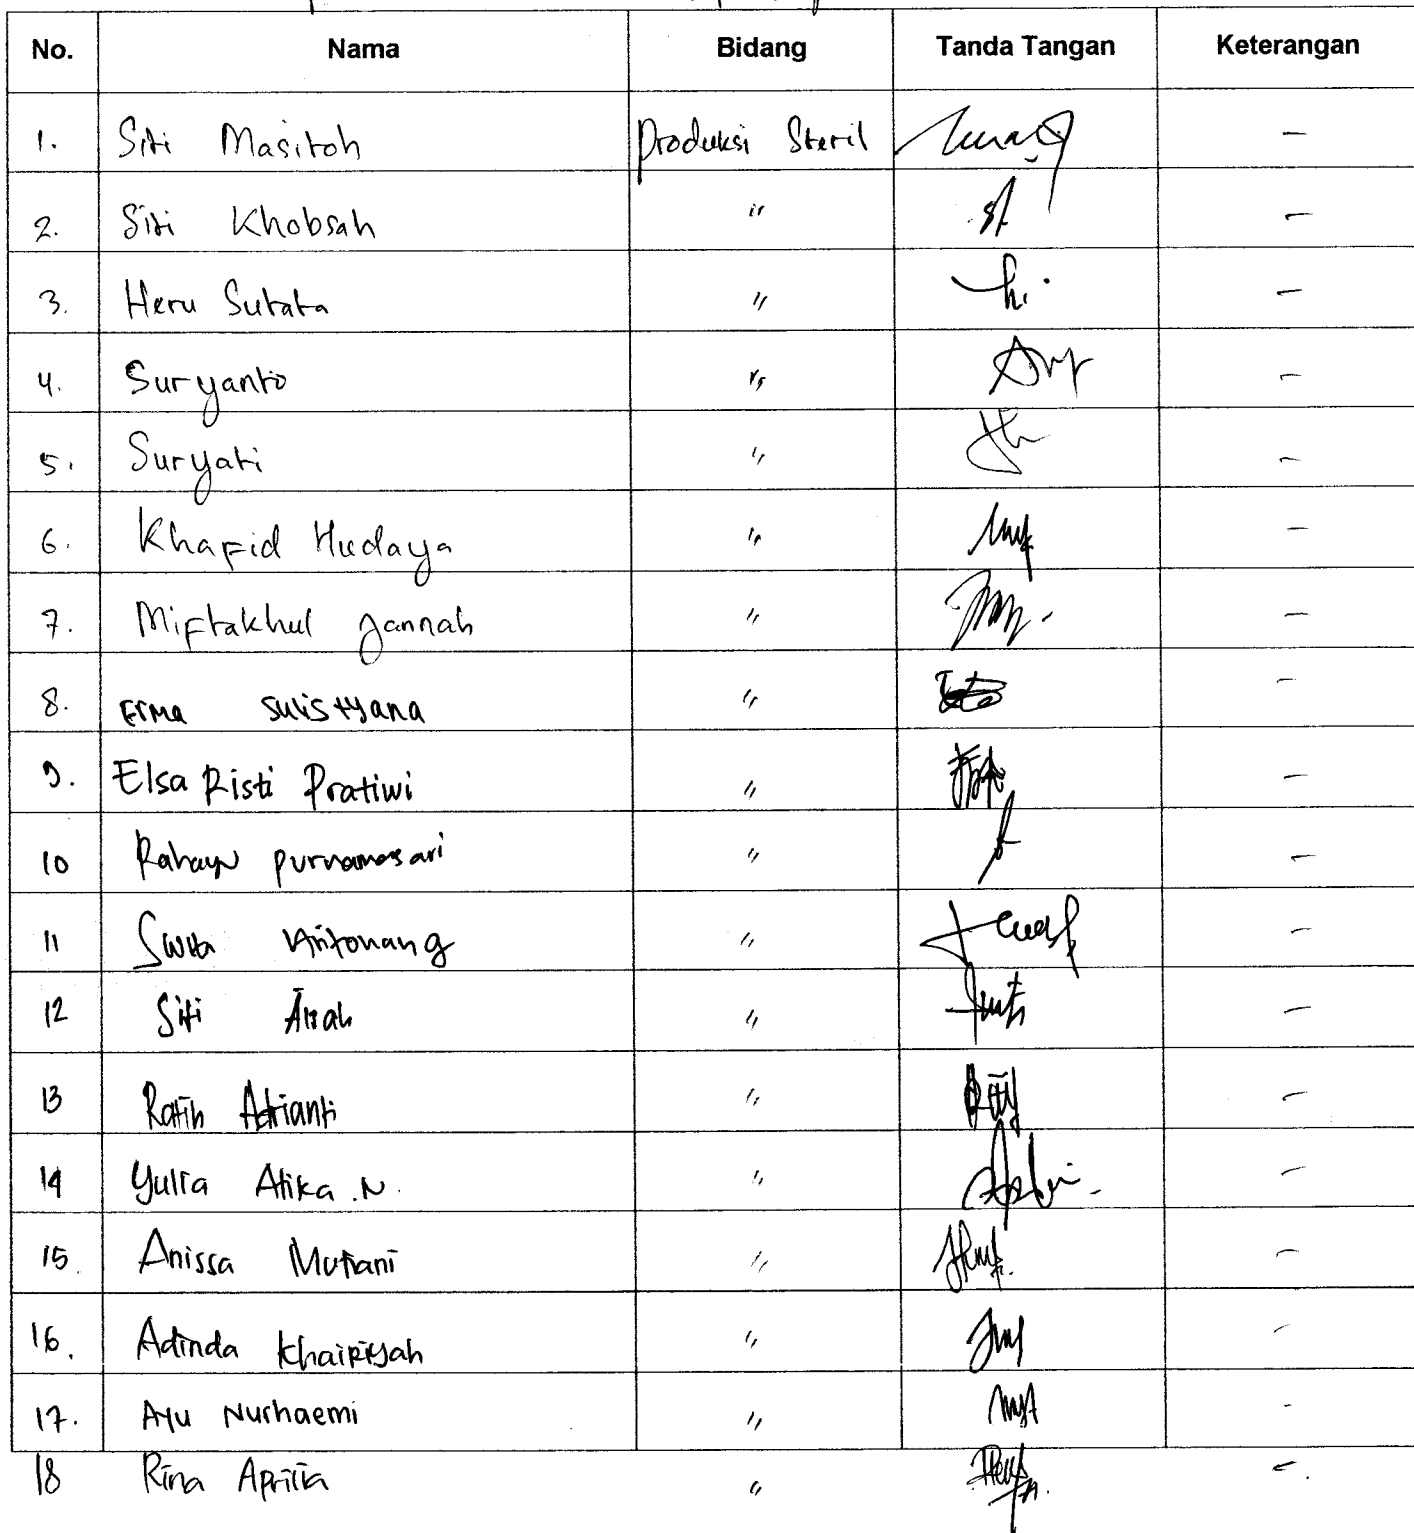 No. Nama Bidang Tanda Tangan Keterangan
1. Siti Masitoh Produksi Steril -
2. Siti Khobsah " -
3. Heru Sutata " -
4. Suryanto " -
5. Suryati " -
6. Khafid Hudaya " -
7. Miftakhul Jannah " -
8. Erma Sulistyana " -
9. Elsa Risti Pratiwi " -
10 Rahayu purnamasari " -
11 Aritonang " -
12 Siti " -
13 Ratih Adrianti " -
14 Yulia Atika .N. " -
15. Anissa Mutiani " -
16. Adinda Khairiyah " -
17. Ayu Nurhaemi " -
18 Rina Aprilia " -